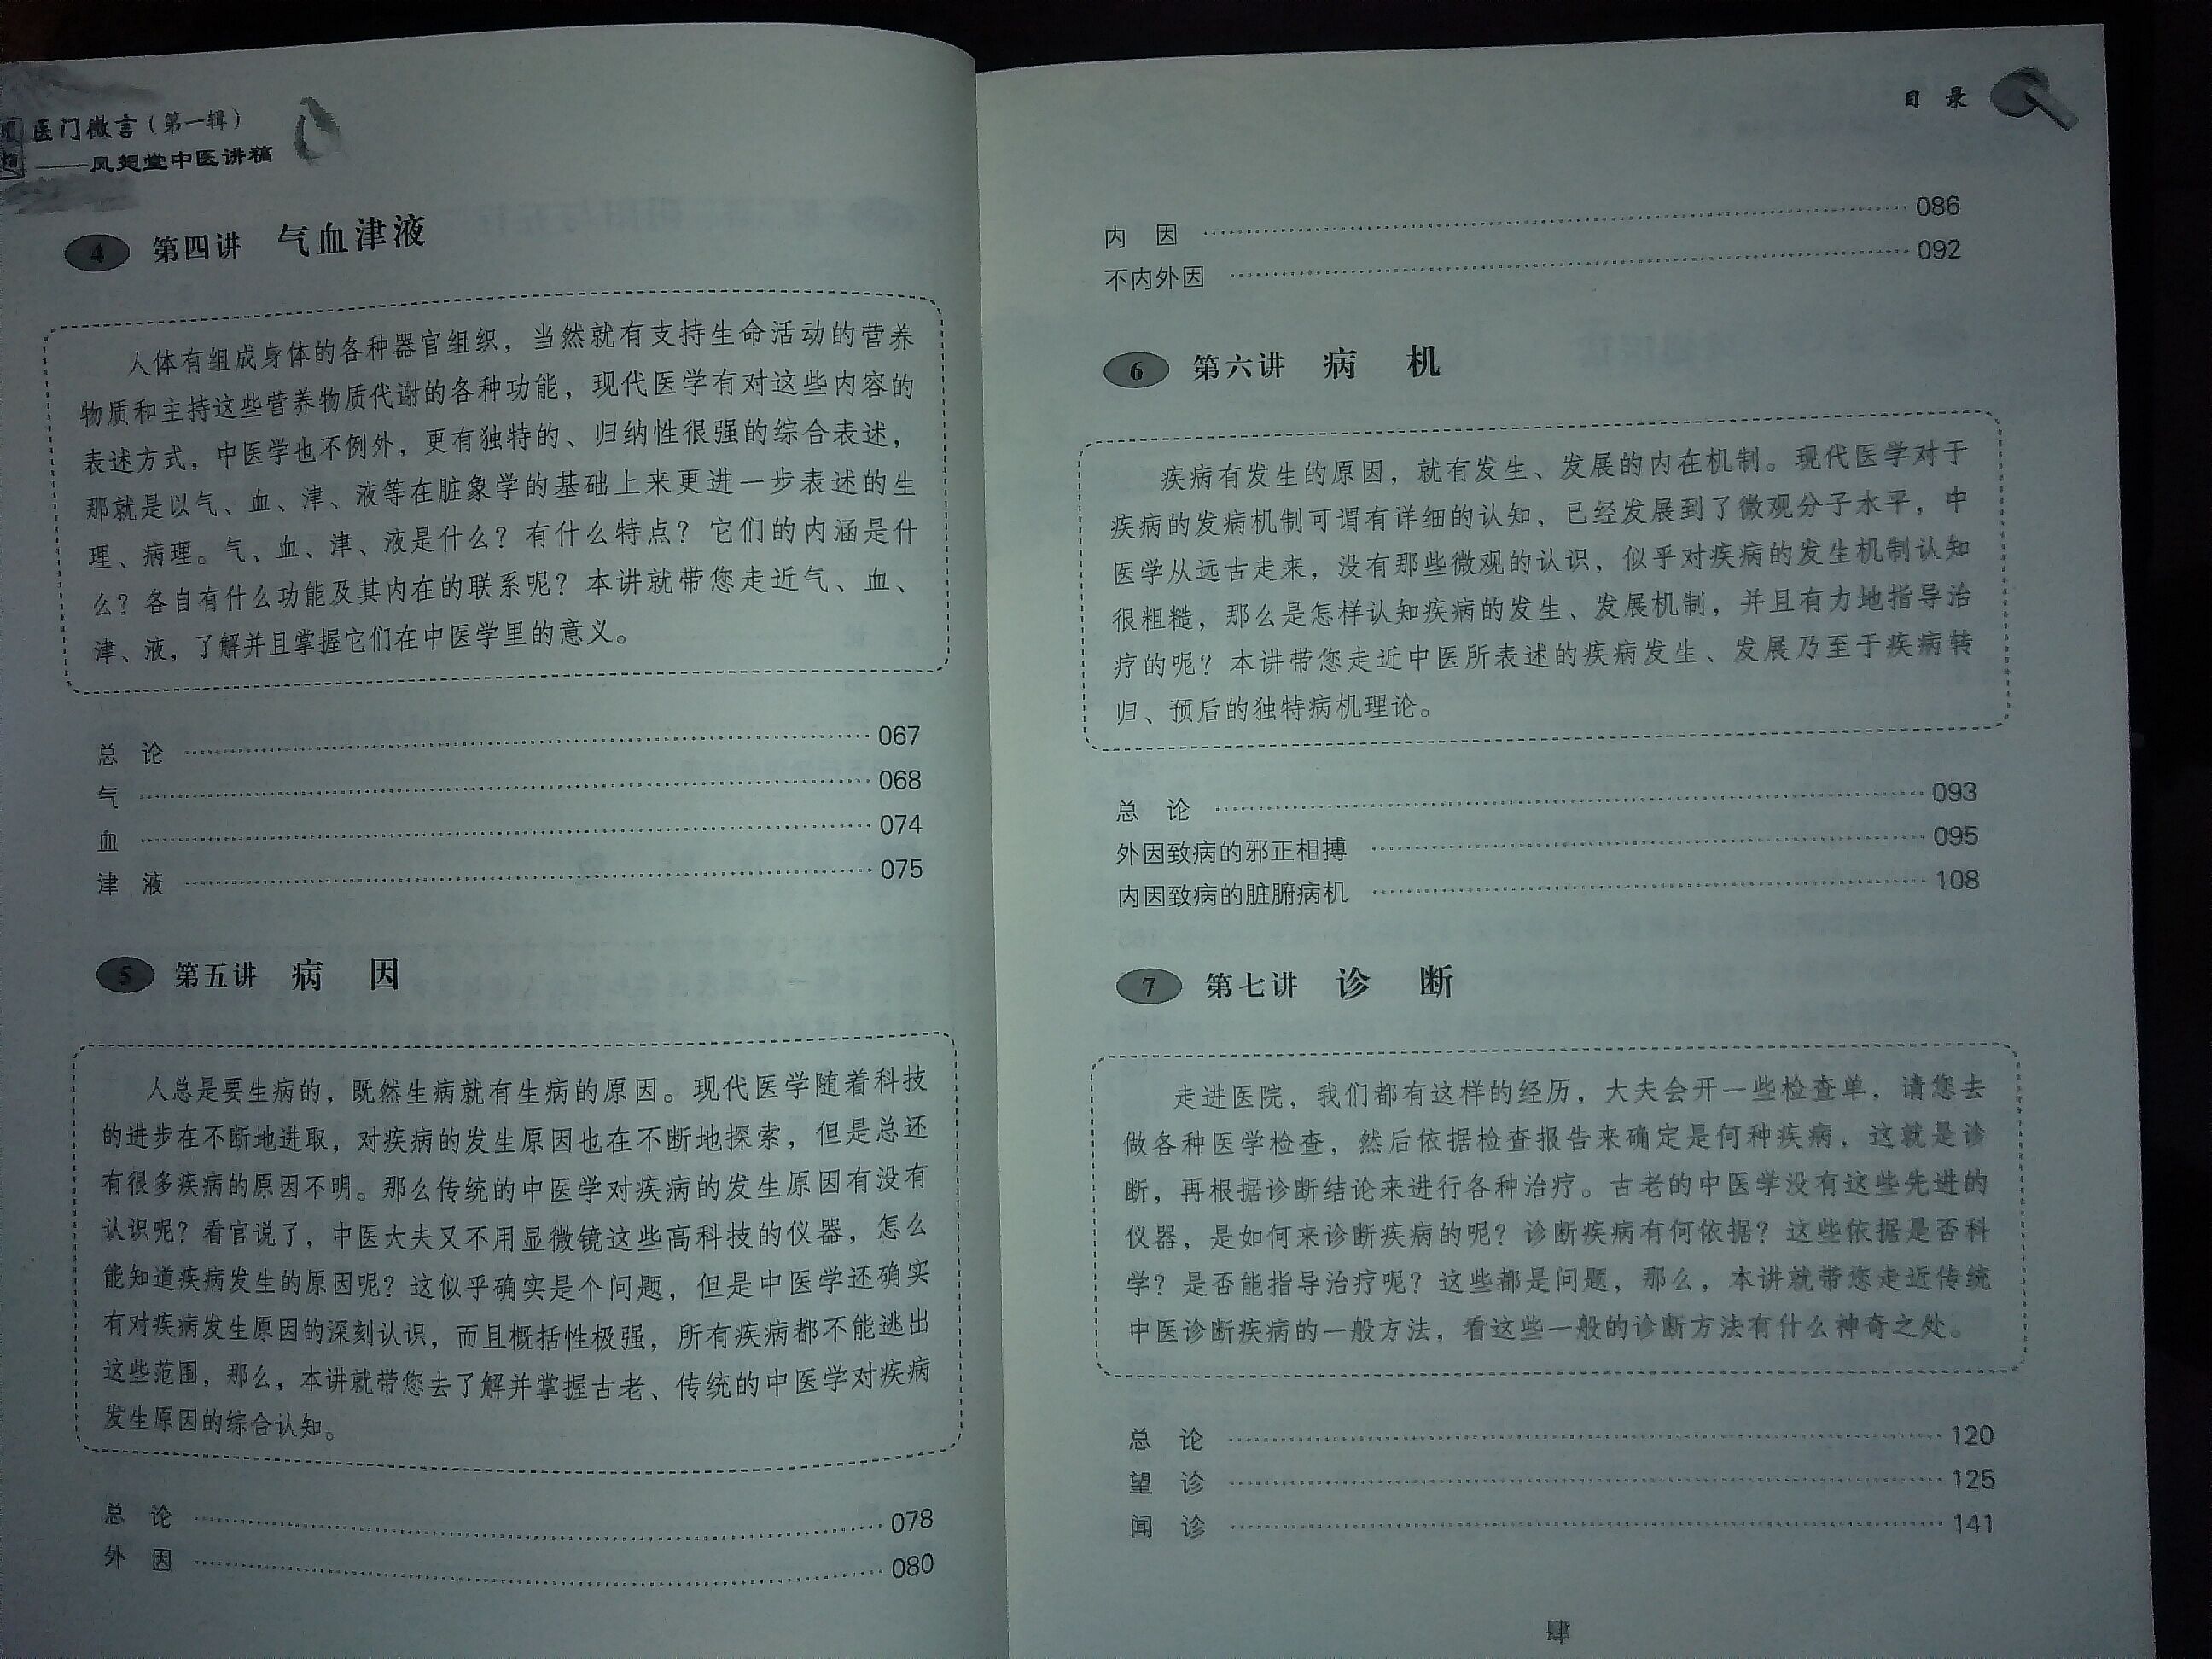 医门微言（第一辑）
——凤翅堂中医讲稿
4 第四讲 气血津液
人体有组成身体的各种器官组织，当然就有支持生命活动的营养
物质和主持这些营养物质代谢的各种功能，现代医学有对这些内容的
表述方式，中医学也不例外，更有独特的、归纳性很强的综合表述，
那就是以气、血、津、液等在脏象学的基础上来更进一步表述的生
理、病理。气、血、津、液是什么？有什么特点？它们的内涵是什
么？各自有什么功能及其内在的联系呢？本讲就带您走近气、血、
津、液，了解并且掌握它们在中医学里的意义。
总 论 067
气 068
血 074
津 液 075
5 第五讲 病 因
人总是要生病的，既然生病就有生病的原因。现代医学随着科技
的进步在不断地进取，对疾病的发生原因也在不断地探索，但是总还
有很多疾病的原因不明。那么传统的中医学对疾病的发生原因有没有
认识呢？看官说了，中医大夫又不用显微镜这些高科技的仪器，怎么
能知道疾病发生的原因呢？这似乎确实是个问题，但是中医学还确实
有对疾病发生原因的深刻认识，而且概括性极强，所有疾病都不能逃出
这些范围，那么，本讲就带您去了解并掌握古老、传统的中医学对疾病
发生原因的综合认知。
总 论 078
外 因 080
目 录
内 因 086
不内外因 092
6 第六讲 病 机
疾病有发生的原因，就有发生、发展的内在机制。现代医学对于
疾病的发病机制可谓有详细的认知，已经发展到了微观分子水平，中
医学从远古走来，没有那些微观的认识，似乎对疾病的发生机制认知
很粗糙，那么是怎样认知疾病的发生、发展机制，并且有力地指导治
疗的呢？本讲带您走近中医所表述的疾病发生、发展乃至于疾病转
归、预后的独特病机理论。
总 论 093
外因致病的邪正相搏 095
内因致病的脏腑病机 108
7 第七讲 诊 断
走进医院，我们都有这样的经历，大夫会开一些检查单，请您去
做各种医学检查，然后依据检查报告来确定是何种疾病，这就是诊
断，再根据诊断结论来进行各种治疗。古老的中医学没有这些先进的
仪器，是如何来诊断疾病的呢？诊断疾病有何依据？这些依据是否科
学？是否能指导治疗呢？这些都是问题，那么，本讲就带您走近传统
中医诊断疾病的一般方法，看这些一般的诊断方法有什么神奇之处。
总 论 120
望 诊 125
闻 诊 141
肆